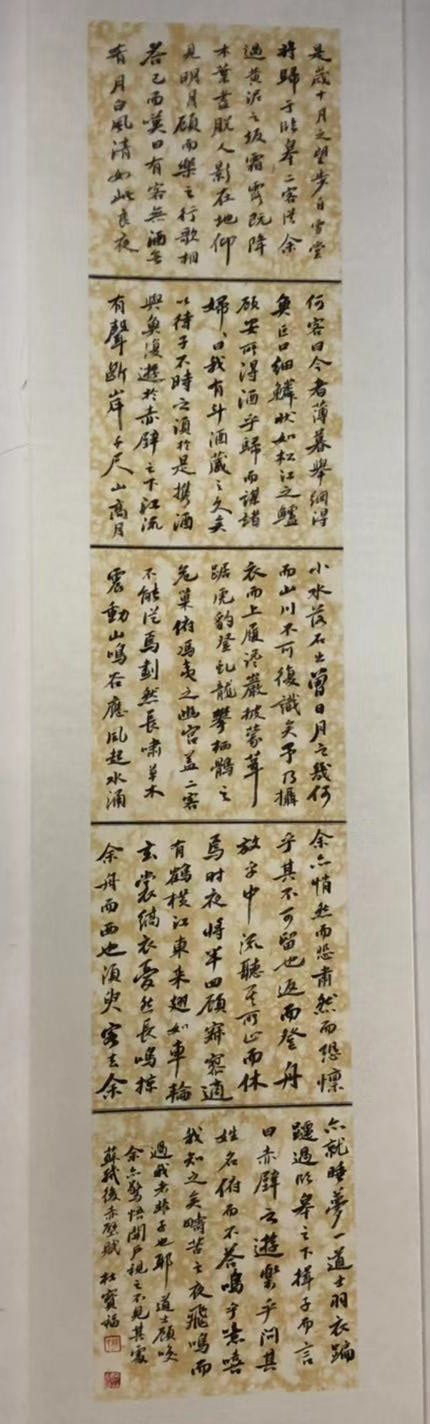 是歲十月之望步自雪堂
将歸于臨皋二客從余
過黄泥之坂霜露既降
木葉盡脱人影在地仰
見明月顧而樂之行歌相
答已而嘆曰有客無酒無
肴月白風清如此良夜
何客曰今者薄暮舉網得
魚巨口細鱗狀如松江之鱸
顧安所得酒乎歸而謀諸
婦々曰我有斗酒藏之久矣
以待子不時之須於是攜酒
與魚復遊於赤壁之下江流
有聲斷岸千尺山高月
小水落石出曾日月之幾何
而山川不可復識矣予乃攝
衣而上履巉巖披蒙茸
踞虎豹登虬龍攀栖鶻之
危巢俯馮夷之幽宮蓋二客
不能從焉劃然長嘯草木
震動山鳴谷應風起水涌
余亦悄然而悲肅然而恐懍
乎其不可留也返而登舟
放乎中流聽其所止而休
焉时夜將半四顧寂寥適
有鶴横江東来翅如車輪
玄裳縞衣戛然長鳴掠
余舟而西也須臾客去余
亦就睡夢一道士羽衣蹁
躚過臨皋之下揖予而言
曰赤壁之遊樂乎問其
姓名俯而不答嗚乎噫嘻
我知之矣疇昔之夜飛鳴而
過我者非子也耶 道士顧笑
余亦驚悟開戶視之不見其處
蘇軾後赤壁賦 杜寶福